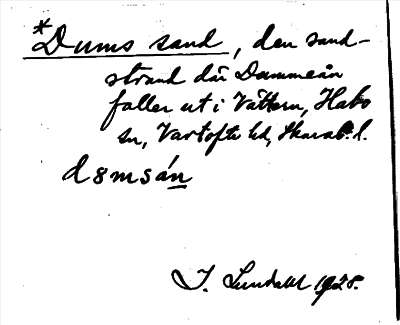 *Dums sand, den sand-
strand där Dummeån
faller ut i Vättern, Habo
sn, Vartofta hd, Skarab. l.
d8msán
J. Lundahl 1928.